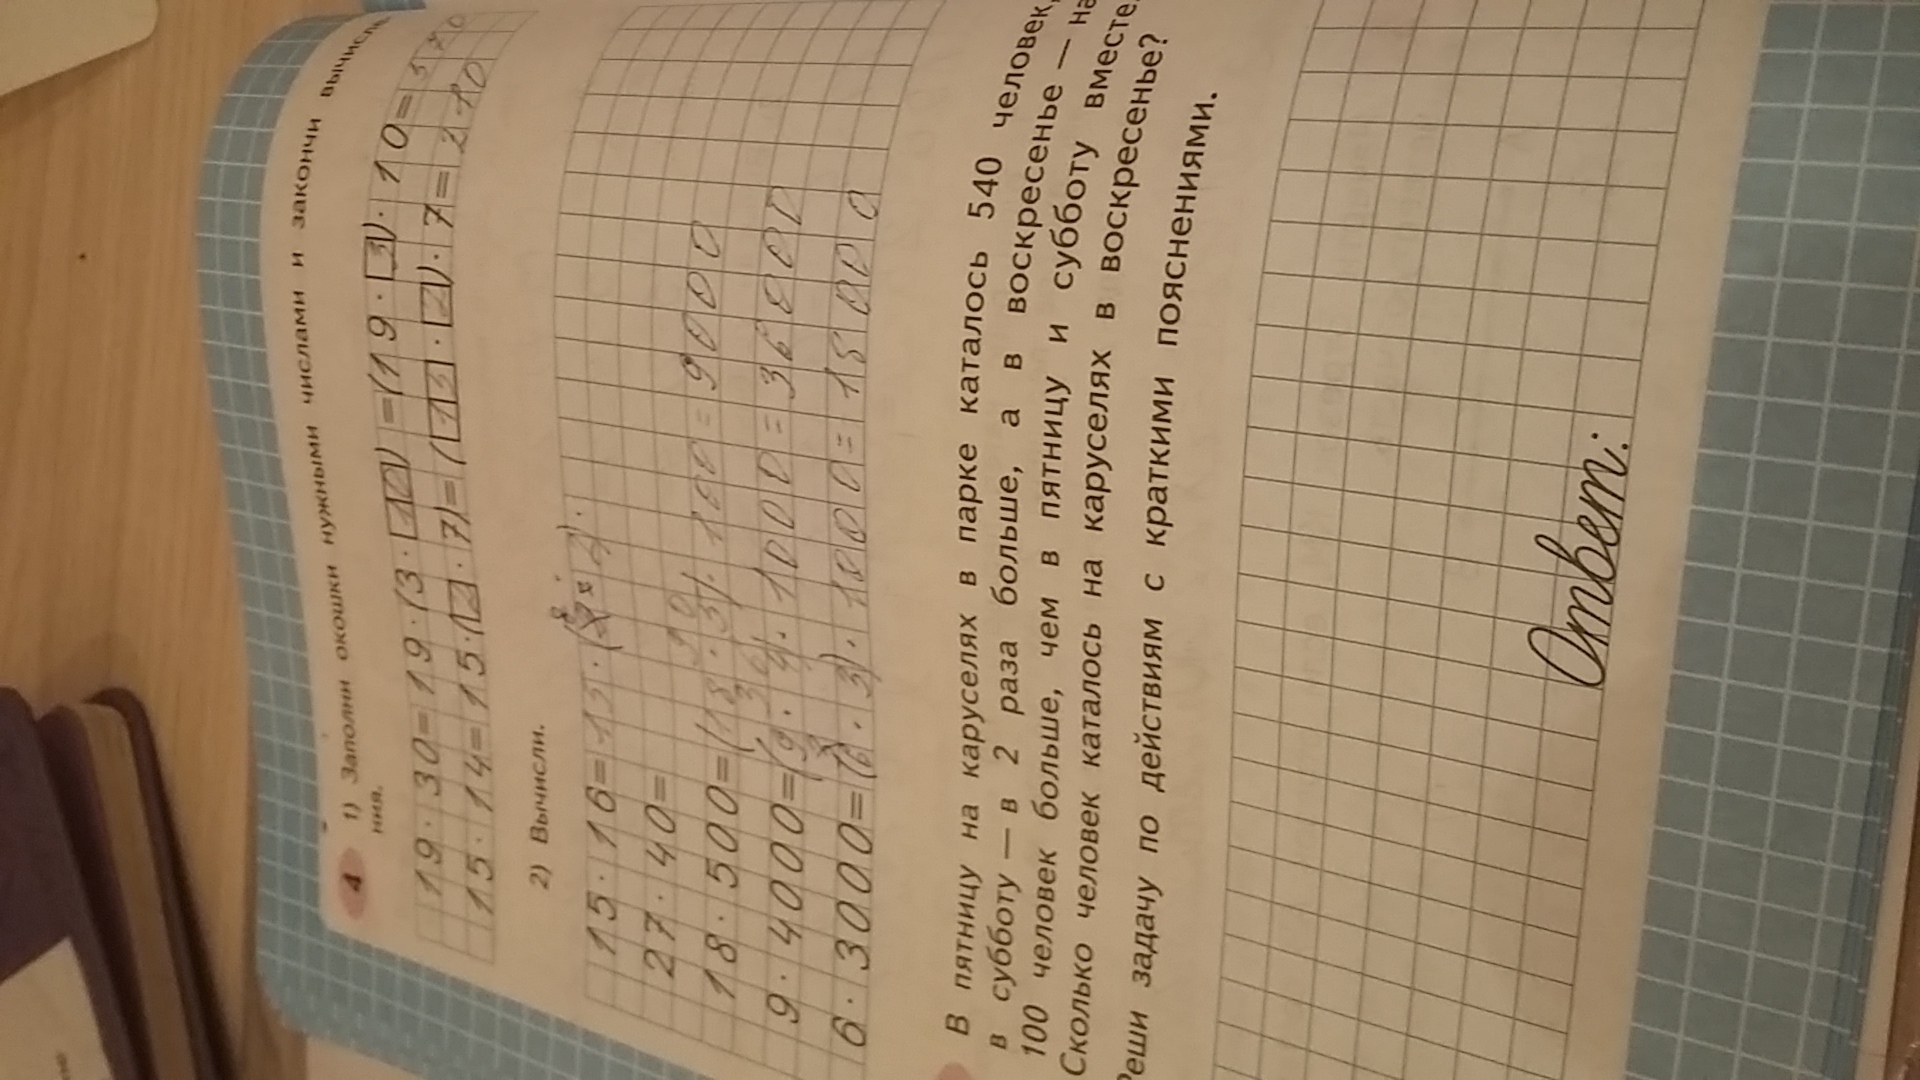 4 1) Заполни окошки нужными числами и закончи
ния.
19 · 30 = 19 · (3 · 10) = (19 · 3) · 10 =
15 · 14 = 15 · (2 · 7) = (15 · 2) · 7 = 210
2) Вычисли.
15 · 16 = 15 ·
27 · 40 =
18 · 500 = (18 · 5) · 100 = 9000
9 · 4000 = (9 · 4) · 1000 = 36000
6 · 3000 = (6 · 3) · 1000 = 18000
В пятницу на каруселях в парке каталось 540 человек,
в субботу — в 2 раза больше, а в воскресенье — на
100 человек больше, чем в пятницу и субботу вместе.
Сколько человек каталось на каруселях в воскресенье?
Реши задачу по действиям с краткими пояснениями.
Ответ: